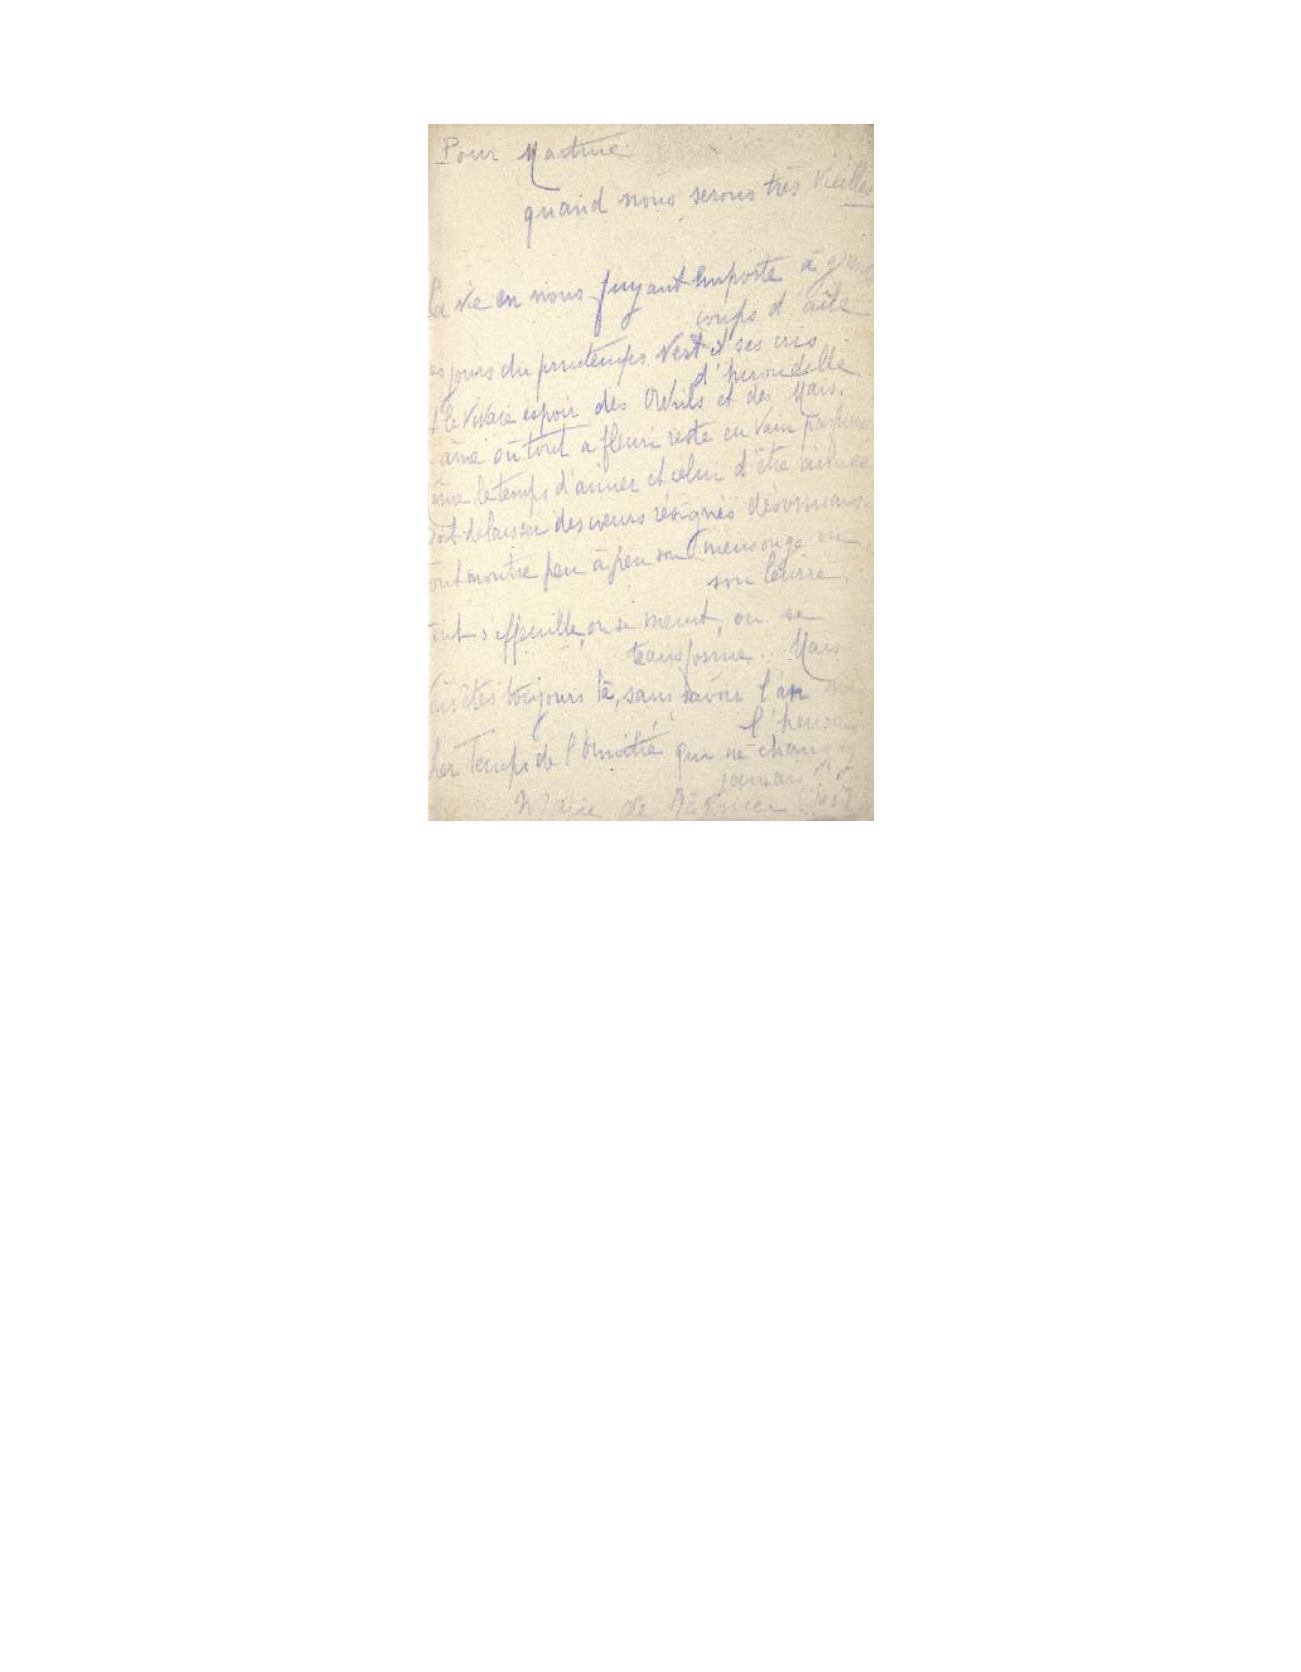 Pour Martine
quand nous serons très vieilles
La vie en nous fuyant emporte à
coups d'aile
es jours du printemps vert et ses cris
d'hirondelle
t le vivace espoir des Avrils et des Mais.
âme où tout a fleuri reste en vain parfumée
ême le temps d'aimer et celui d'être aimée
doit délaisser des cœurs résignés désormais.
out montre peu à peu son mensonge ou
son leurre
out s'effeuille, ou se meurt, ou se
transforme. Mais
ous êtes toujours là, sans savoir l'an ni
l'heure
her Temps de l'Amitié qui ne change
jamais
Marie de Régnier